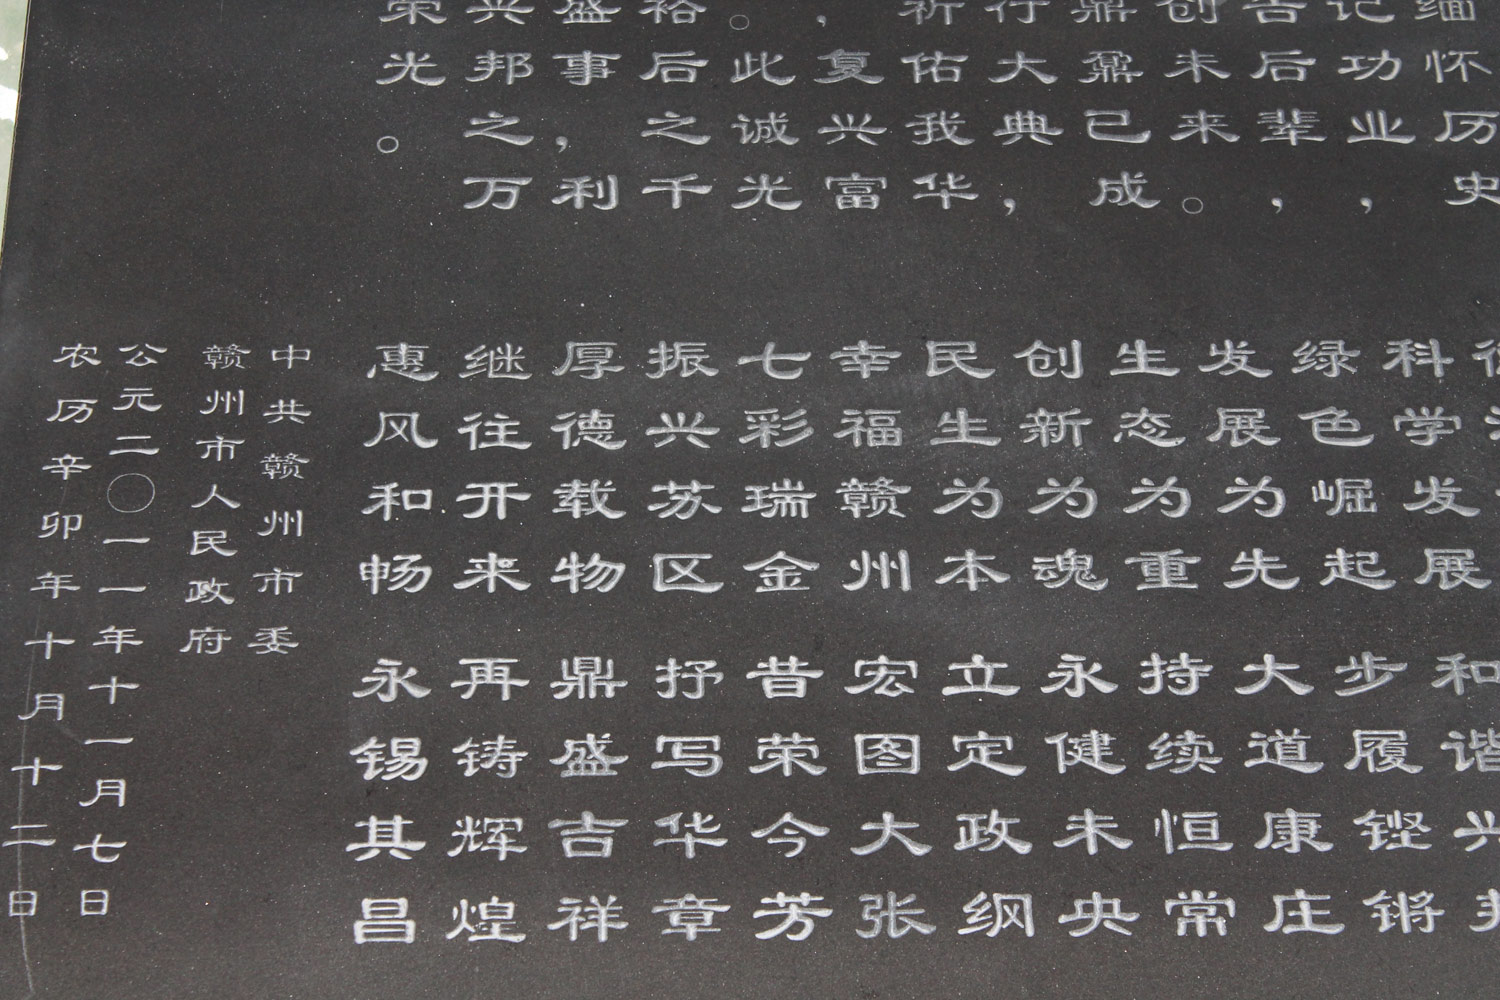 缅怀历史
记功业，
告后辈，
创未来。
鼎鼐已成
行大典，
祈佑我华
，复兴富
。此诚光
裕后之千
盛事，利
兴邦之万
荣光。
科学发展 和谐兴
绿色崛起 步履铿锵
发展为先 大道康庄
生态为重 持续恒常
创新为魂 永健未央
民生为本 立定政纲
幸福赣州 宏图大张
七彩瑞金 昔荣今芳
振兴苏区 抒写华章
厚德载物 鼎盛吉祥
继往开来 再铸辉煌
惠风和畅 永锡其昌
中共赣州市委
赣州市人民政府
公元二〇一一年十一月七日
农历辛卯年十月十二日